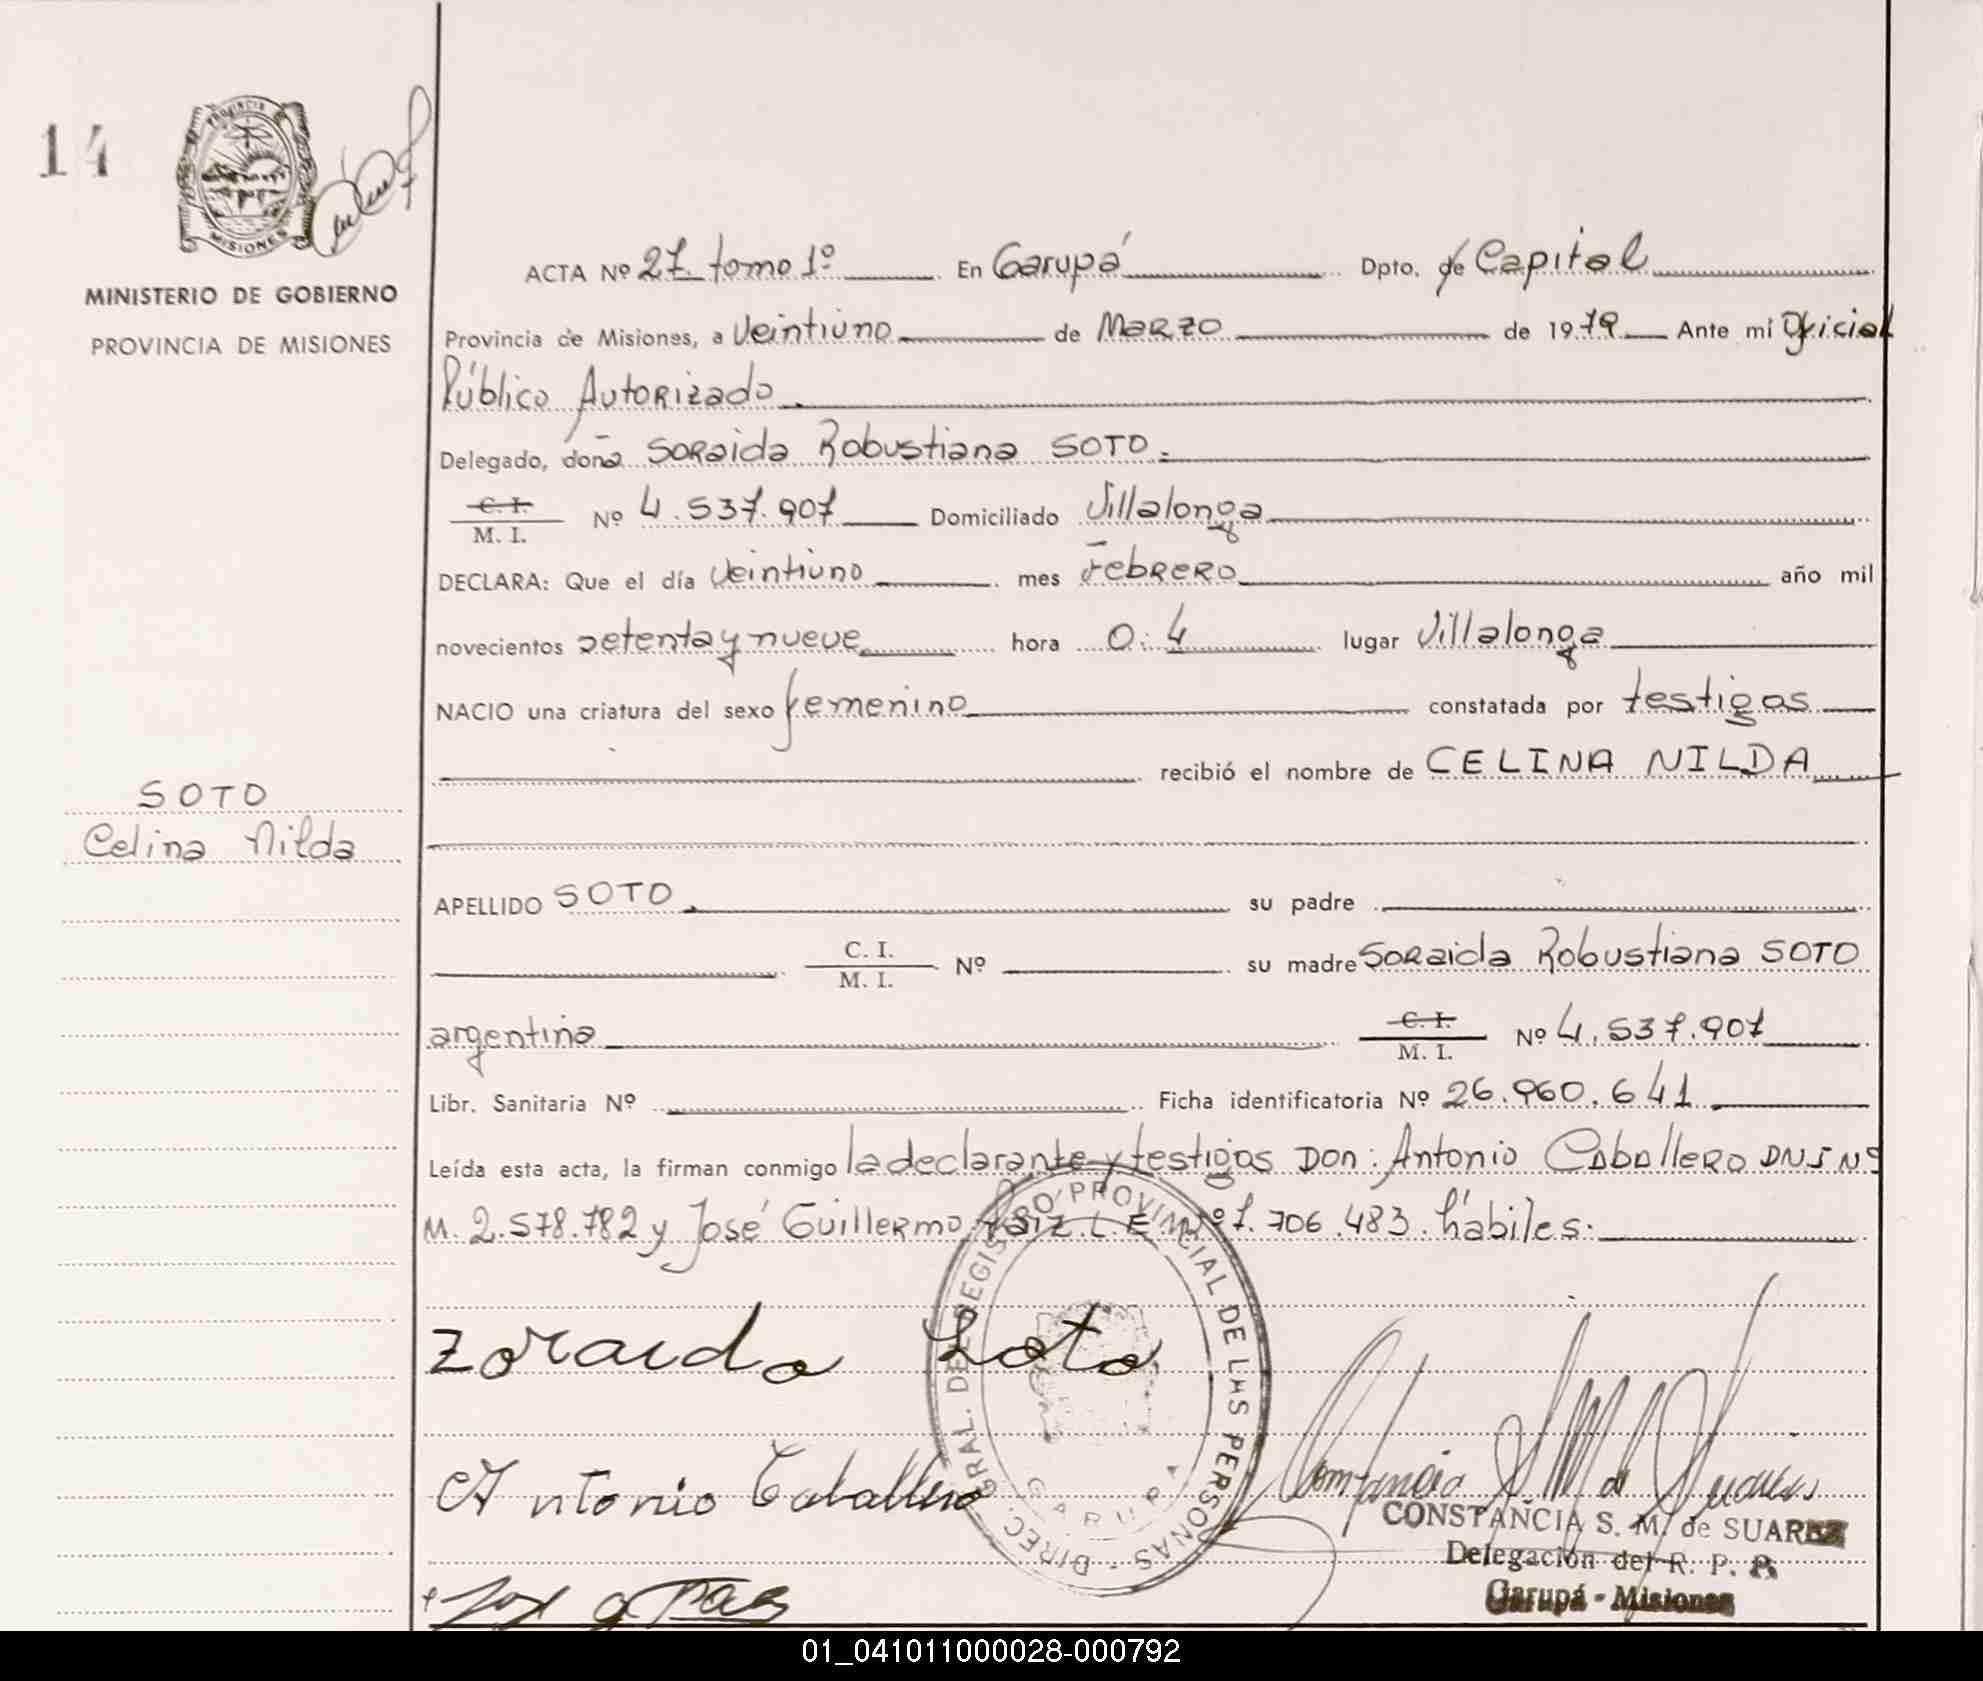 14
PROVINCIA
MISIONES
MINISTERIO DE GOBIERNO
PROVINCIA DE MISIONES
ACTA Nº 27. tomo 1º En Garupá Dpto. de Capital
Provincia de Misiones, a veintiuno de Marzo de 1979 Ante mí Oficial
Público Autorizado
Delegado, doña Soraida Robustiana SOTO.
C. I.
M. I. Nº 4.537.907 Domiciliado Villalonga
DECLARA: Que el día veintiuno mes Febrero año mil
novecientos setenta y nueve hora 0:4 lugar Villalonga
NACIO una criatura del sexo femenino constatada por testigos
recibió el nombre de CELINA NILDA
SOTO
Celina Nilda
APELLIDO SOTO. su padre
C. I.
M. I. Nº su madre Soraida Robustiana SOTO
argentina C. I.
M. I. Nº 4.537.907
Libr. Sanitaria Nº Ficha identificatoria Nº 26.960.641
Leída esta acta, la firman conmigo la declarante y testigos Don: Antonio Caballero DNI Nº
M. 2.578.782 y José Guillermo L.E. Nº 7.706.483. hábiles.
DIREC. GRAL. DEL REGISTRO PROVINCIAL DE LAS PERSONAS
GARUPA
Zoraida Soto
Antonio Caballero
CONSTANCIA S. M. de SUAREZ
Delegación del R. P. P.
Garupá - Misiones
01_041011000028-000792